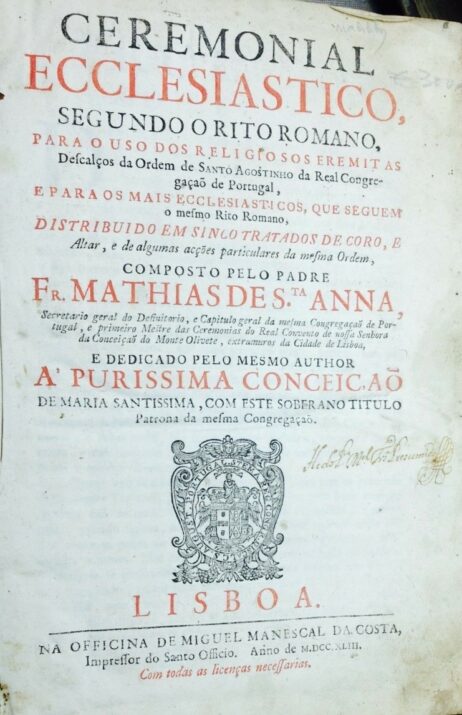 CEREMONIAL
ECCLESIASTICO,
SEGUNDO O RITO ROMANO,
PARA O USO DOS RELIGIOSOS EREMITAS
Deſcalços da Ordem de SANTO AGOSTINHO da Real Congre-
gaçaõ de Portugal,
E PARA OS MAIS ECCLESIASTICOS, QUE SEGUEM
o meſmo Rito Romano,
DISTRIBUIDO EM SINCO TRATADOS DE CORO, E
Altar, e de algumas acções particulares da meſma Ordem,
COMPOSTO PELO PADRE
FR. MATHIAS DE S.TA ANNA,
Secretario geral do Definitorio, e Capitulo geral da meſma Congregaçaõ de Por-
tugal, e primeiro Meſtre das Ceremonias do Real Convento de noſſa Senhora
da Conceiçaõ do Monte Olivete, extramuros da Cidade de Lisboa,
E DEDICADO PELO MESMO AUTHOR
A' PURISSIMA CONCEICAÕ
DE MARIA SANTISSIMA, COM ESTE SOBERANO TITULO
Patrona da meſma Congregaçaõ.
LISBOA.
NA OFFICINA DE MIGUEL MANESCAL DA COSTA,
Impreſſor do Santo Officio. Anno de M.DCC.XLIII.
Com todas as licenças neceſſarias.